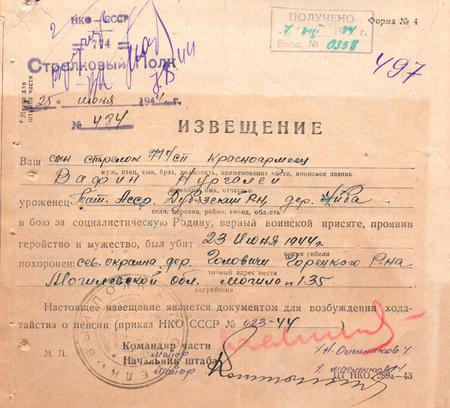 НКО-СССР
774
Стрелковый Полк
25 июня 1944 г.
№ 484
ПОЛУЧЕНО
Вход. № 0358
Форма № 4
497
Место для штампа части
ИЗВЕЩЕНИЕ
Ваш сын стрелок 774 сп Красноармеец
муж, отец, сын, брат, должность, наименование части, воинское звание
Вафин Нургалей
фамилия, имя, отчество
уроженец Тат. Асср. Дубъязский рн, дер.
село, деревня, район, город, область
в бою за социалистическую Родину, верный воинской присяге, проявив
геройство и мужество, был убит 23 Июня 1944г
время гибели
похоронен: сев. окраина дер. Горецкого р-на
точный адрес места
Могилевской обл. могила № 135
погребения
Настоящее извещение является документом для возбуждения хода-
тайства о пенсии (приказ НКО СССР № 023-44
М. П.
Командир части
майор
Начальник штаба
майор
ЦТ НКО. 289а-43